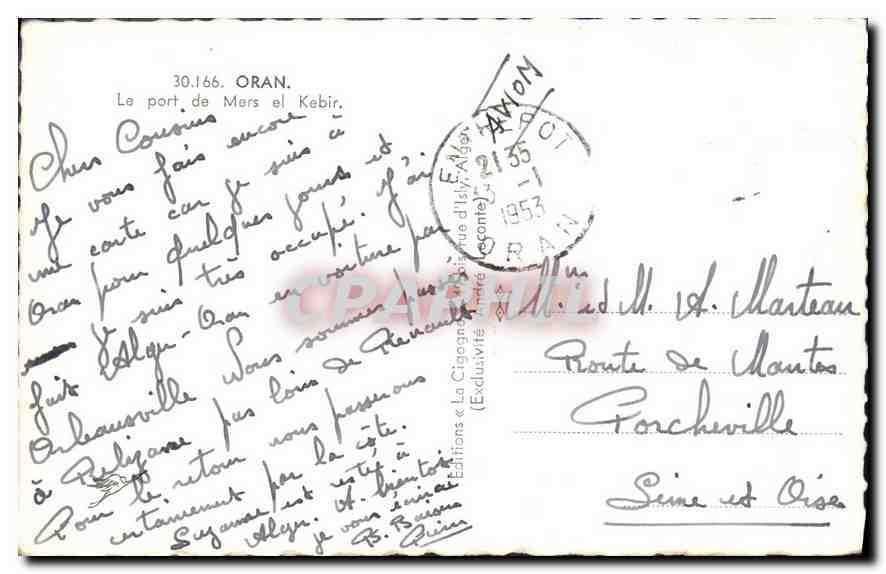 30.166. ORAN.
Le port de Mers el Kebir.
Chers Cousins
Je vous fais encore
une carte car je suis à
Oran pour quelques jours et
je suis très occupé. J'ai
fait Alger - Oran en voiture par
Orléansville Nous sommes passés
à Relizane pas loin de Renault
Pour le retour nous passerons
certainement par la côte.
Suzanne est restée à
Alger. A bientôt
je vous écrirai
B. Baisers
Pierre
AVION
21 35
-1
1953
ORAN
Editions « La Cigogne rue d'Isly, Alger
(Exclusivité André Leconte)
CPAPHIL
Mme et M. A. Marteau
Route de Mantes
Porcheville
Seine et Oise